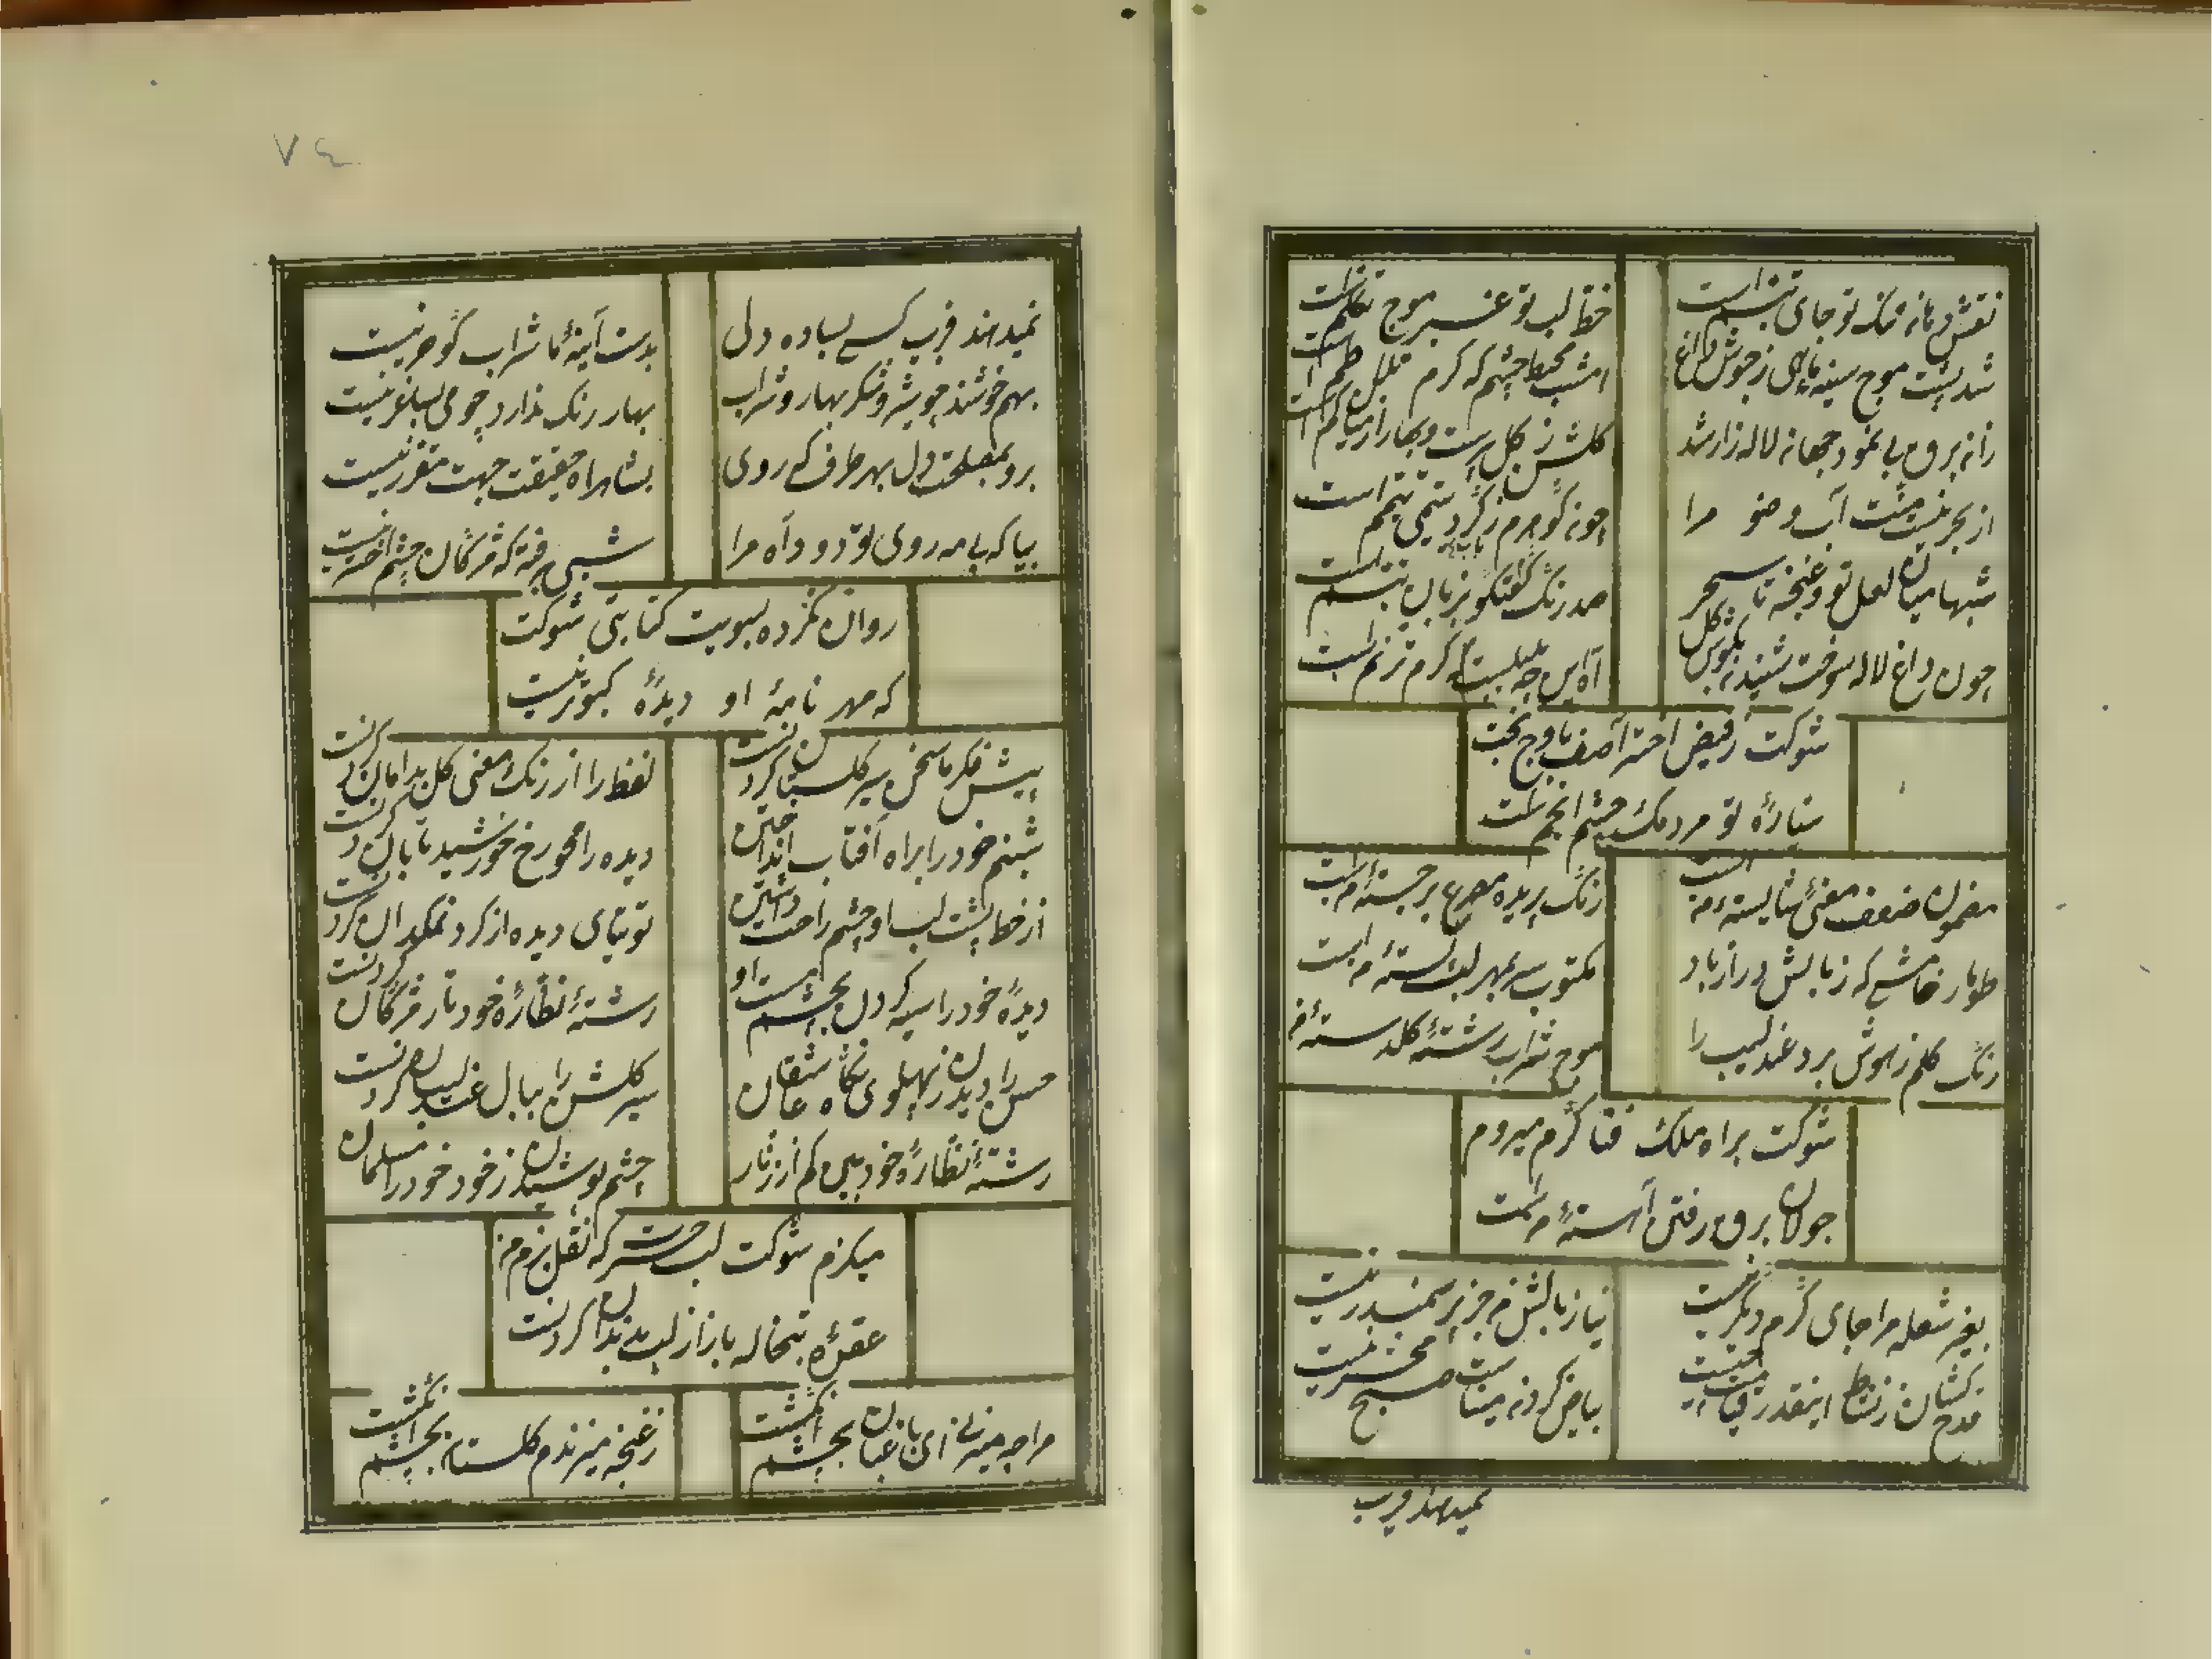 نقش دهان تنک تو جای تبسم است
خط لب تو عنبر موج تکلم است
شد پشت موج سینه ماهی ز جوش داغ
امشب محیط چشم که گرم تلاطم است
زان برق بی نمود جهان لاله زار شد
گلشن ز گل پرست و بهار از میان گم است
از بحر نیست منت آب وضو مرا
چون گوهرم ز گرد یتیمی تیمم است
شبها میان لعل تو و غنچه تا سحر
صد رنک گفتگو بزبان تبسم است
چون داغ لاله سوخت شنیدن بگوش گل
آه این چه بلبلیست که گرم ترنم است
شوکت ز فیض اختر آصف باوج بخت
ستارهٔ تو مردمک چشم انجم است
مضمون ضعف معنی شایستهٔ من است
رنک پریده مصرع برجستهٔ من است
طومار خامشی که زبانش دراز باد
مکتوب سر بمهر لب بستهٔ من است
رنک گلم ز هوش برد عندلیب را
موج شراب رشتهٔ گلدستهٔ من
شوکت براه ملک فنا گرم میروم
جولان برق رفتن آهستهٔ من است
بغیر شعله مرا جای گرم دیگر نیست
نیاز بالش من جز پر سمندر نیست
قدح کشان ز نشاط اینقدر قیامت چیست
بیاض گردن میناست صبح محشر نیست
نمیدهند فریب
٧٤
نمیدهند فریب کسی بساده دلی
بدست آینهٔ ما شراب گوهر نیست
بهم خوشند چو شیر و شکر بهار و شراب
بهار رنک ندارد چو می بساغر نیست
برو بمصلحت دل بهر طرف که روی
بشاهراه حقیقت جهت مقرر نیست
بیا که بی مه روی تو دود آه مرا
شبی نرفته که مژکان چشم اختر نیست
روان نکرده بسویت کتابتی شوکت
که مهر نامهٔ او دیدهٔ کبوتر نیست
پیش فکر ما سخن سیر گلستان کردنست
لفظ را از رنک معنی گل بدامان کردنست
شبنم خود را براه آفتاب انداختن
دیده را محو رخ خورشید تابان کردنست
از خط پشت لب او چشم راحت داشتن
توتیای دیده از گرد نمکدان کردنست
دیدهٔ خود را سیه کردن بچشم مست او
رشتهٔ نظارهٔ خود تار مژکان کردنست
حسن را دیدن ز پهلوی نگاه عاشقان
سیر گلشن را ببال عندلیبان کردنست
رشتهٔ نظارهٔ خود بین کم از زنار
چشم پوشیدن ز خود خود را مسلمان
میکزم شوکت لب حسرت که نقل بزم من
عقدهٔ تبخاله باز از لب بدندان کردنست
مرا چه میزنی ای باغبان بچشم انگشت
ز غنچه میزندم گلستان بچشم انگشت